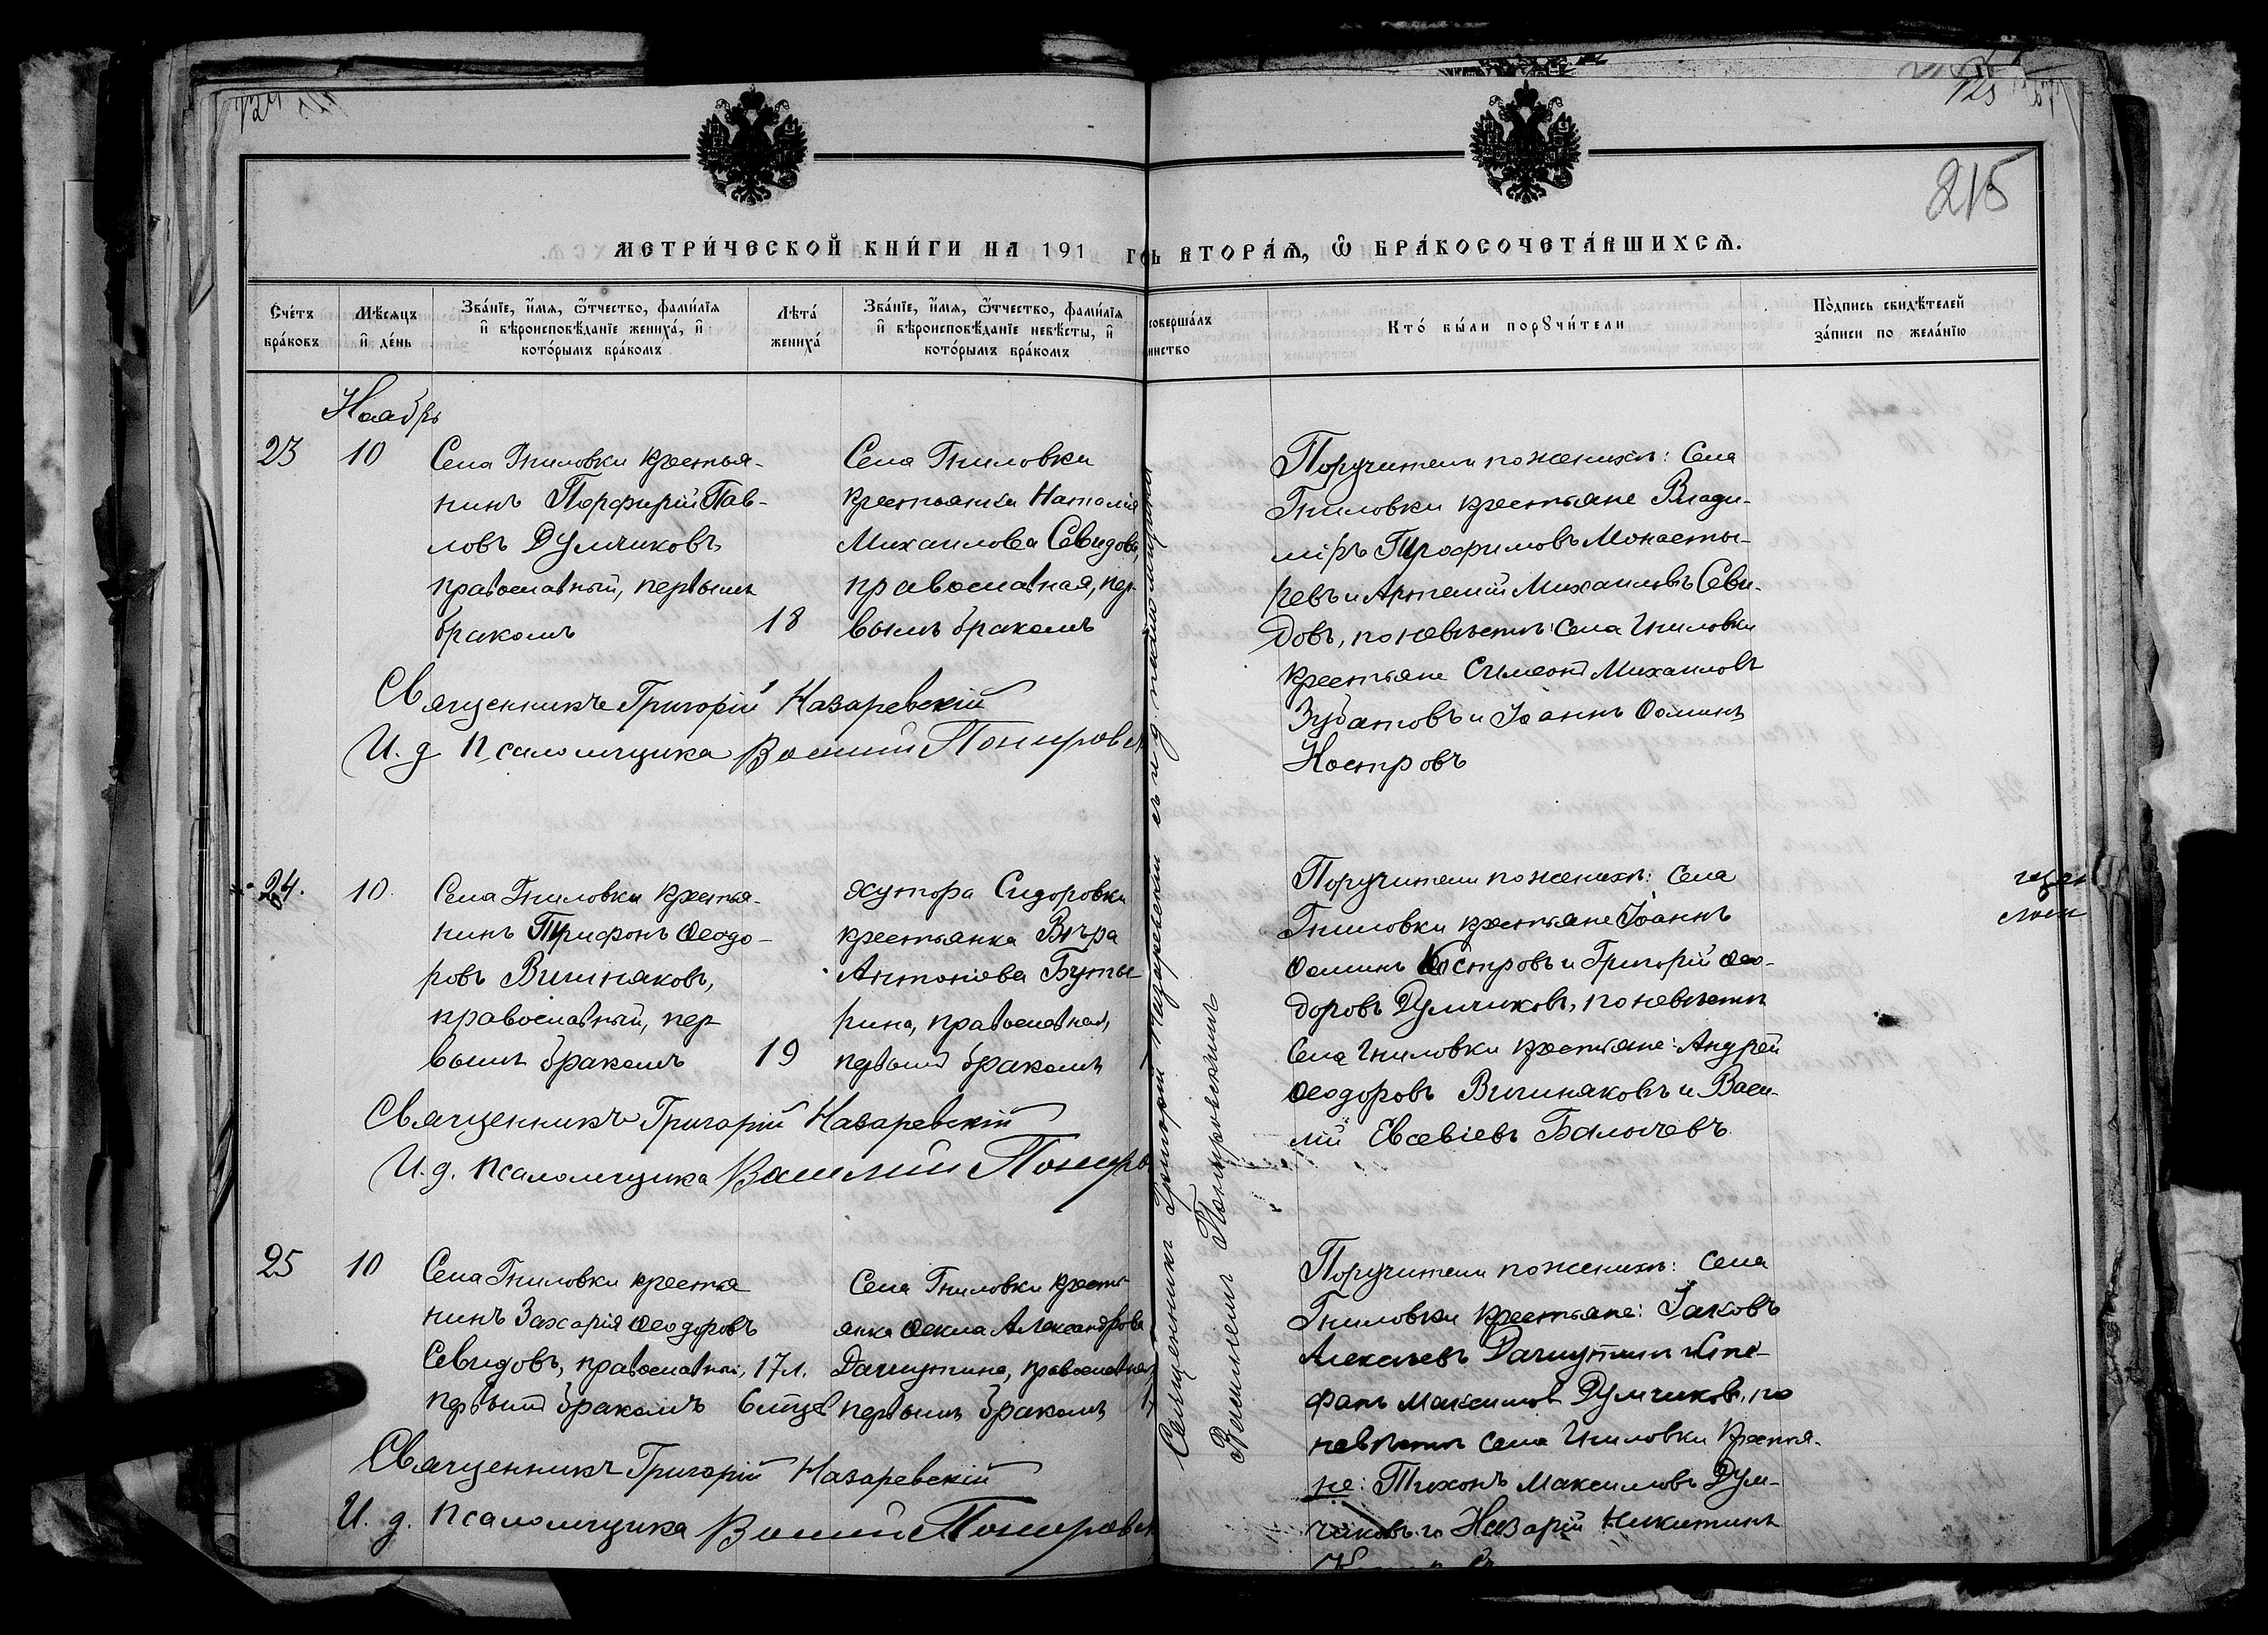 215
МЕТРИ́ЧЕСКОЙ КНИ́ГИ НА 191
ВТОРА́Ѧ, Ѿ БРА́КОСОЧЕТА́ВШИХСѦ.
Сче́тъ бра́ковъ
Мѣ́сяцъ и҆ де́нь
Зва́нїе, и҆́мѧ, ѻ҆́тчество, фами́лїѧ
и҆ вѣроисповѣ́данїе жениха́, и҆
кото́рымъ бра́комъ
Лѣта́ жениха́
Зва́нїе, и҆́мѧ, ѻ҆́тчество, фами́лїѧ
и҆ вѣроисповѣ́данїе невѣ́сты, и҆
кото́рымъ бра́комъ
соверша́лъ
инство
Кто́ бы́ли порꙋчи́тели
По́дпись свидѣ́телей
за́писи по жела́нїю
Ноябрь
23
10
Села Гниловки крестья-
нинъ Порфирій Пав-
ловъ Думчиковъ,
православный, первымъ
бракомъ
18
Села Гниловки
крестьянка Наталія
Михаилова Свидова,
православная, пер-
вымъ бракомъ
Поручители по женихѣ: Села
Гниловки крестьяне Влади-
міръ Трофимовъ Монасты-
ревъ и Артемій Михаиловъ Сви-
довъ, по невѣстѣ: Села Гниловки
крестьяне Симеонъ Михаиловъ
Зубатовъ и Іоаннъ Ѳоминъ
Костровъ
Священникъ Григорій Назаревскій
И. д. Псаломщика Василій
24.
10
Села Гниловки крестья-
нинъ Трифонъ Ѳеодо-
ровъ Вишняковъ,
православный, пер-
вымъ бракомъ
19
Хутора Сидоровки
крестьянка Вѣра
Антоніева Буты-
рина, православная,
первымъ бракомъ
Поручители по женихѣ: Села
Гниловки крестьяне Іоаннъ
Ѳоминъ Костровъ и Григорій Ѳео-
доровъ Думчиковъ, по невѣстѣ
Села Гниловки крестьяне: Андрей
Ѳеодоровъ Вишняковъ и Васи-
лій Евсевіевъ Балычевъ
Священникъ Григорій Назаревскій
И. д. псаломщика Василій
25
10
Села Гниловки крестья
нинъ Захарія Ѳеодоровъ
Свидовъ, православный,
первымъ бракомъ
17 л.
6 мцев
Села Гниловки кресть-
янка Ѳекла Александрова
Дашутина, православная
первымъ бракомъ
Поручители по женихѣ: Села
Гниловки крестьяне: Іаковъ
Алексѣевъ Дашутинъ и Сте-
фанъ Максимовъ Думчиковъ, по
невѣстѣ Села Гниловки крестья-
не: Тихонъ Максимовъ Дум-
чиковъ и Назарій Никитинъ
Священникъ Григорій Назаревскій
И. д. псаломщика Василій
Священникъ Григорій Назаревскій съ и. д. псаломщика
Василіемъ